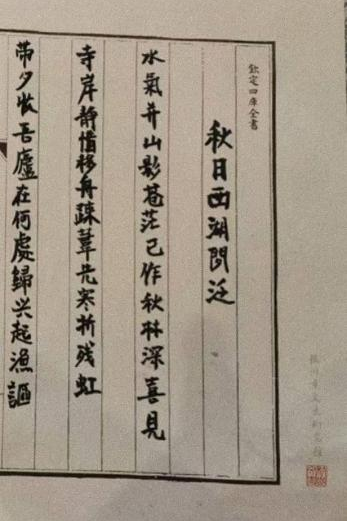 欽定四库全書
秋日西湖閒泛
水氣并山影苍茫已作秋林深喜見
寺岸静惜移舟疎葦先寒折残虹
带夕收吾廬在何處歸兴起漁謳